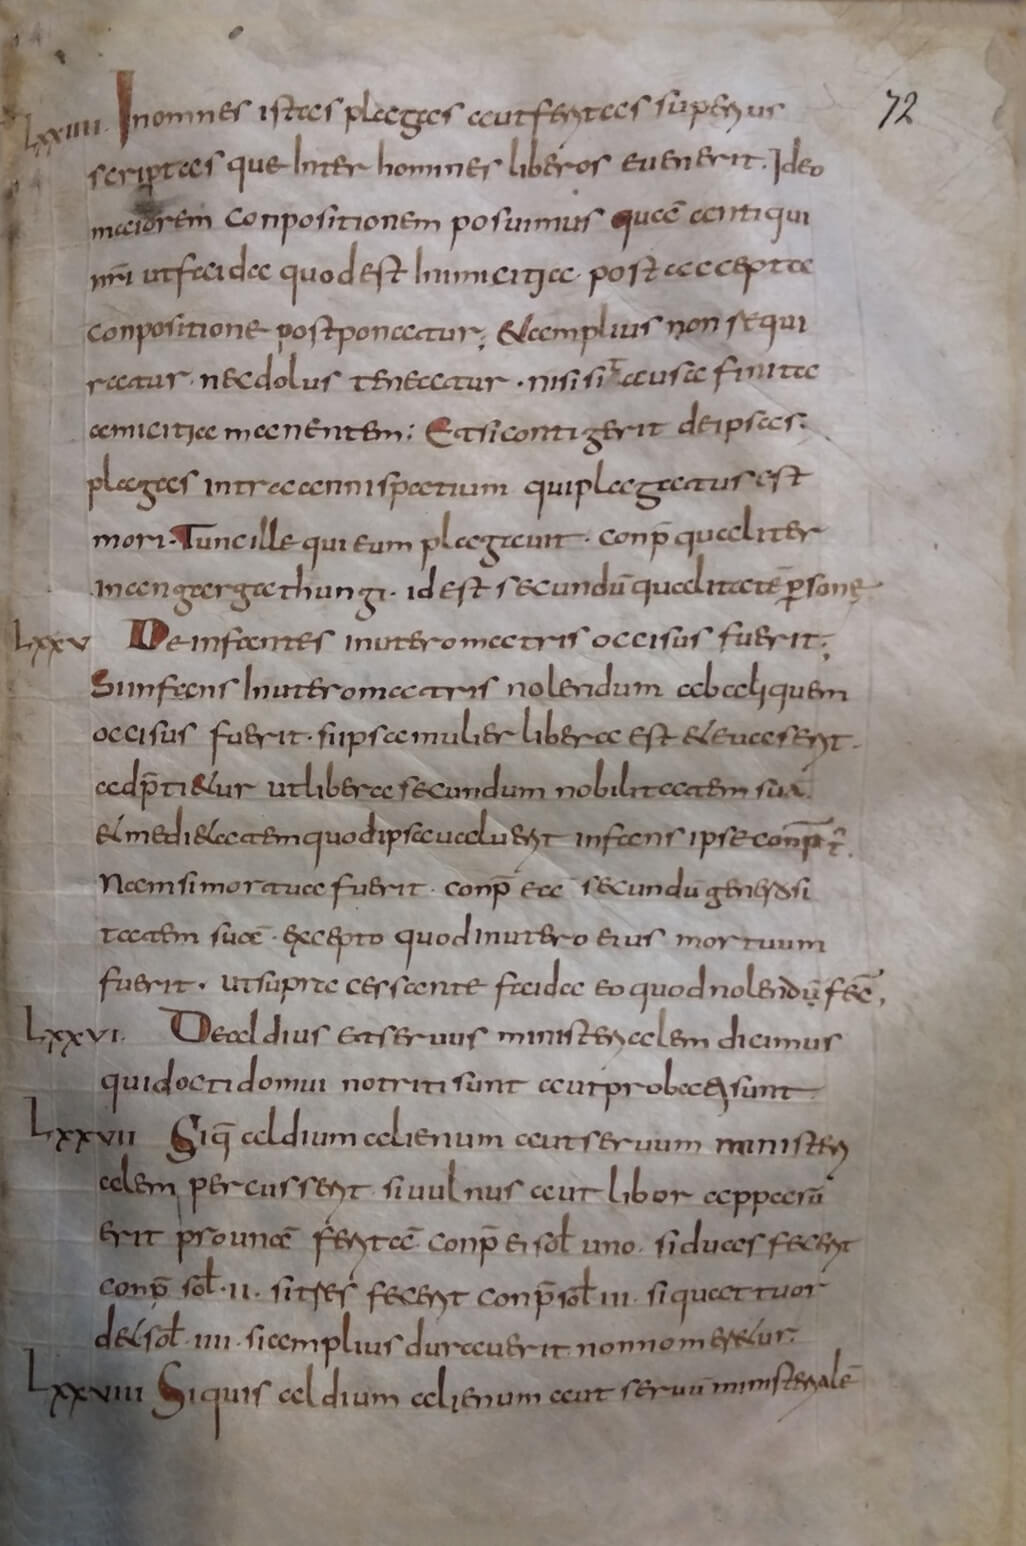 72
Lxxiiii. In omnes istas plagas aut feritas superius
scriptas que inter homines liberos evenerit. Ideo
maiorem conpositionem posuimus quā antiqui
nr̄i ut faida quod est inimicitia post accepta
conpositione postponatur; et amplius non requi
ratur. nec dolus teneatur. nisi sit causa finita
amicitia manentem: Et si contigerit de ipsas.
plagas intra anni spatium qui plagatus est
mori. Tunc ille qui eum plagavit. conp̄ qualiter
in angargathungi. id est secundū qualitatē p̄sone
Lxxv De infantes in utero matris occisus fuerit;
Si infans in utero matris nolendum ab aliquem
occisus fuerit. si ipsa mulier libera est et evaserit.
adp̄tietur ut libera secundum nobilitatem suā.
et medietatem quod ipsa valuerit infans ipse conp̄r̄.
Nam si mortua fuerit. conp̄ eā secundū generosi
tatem suā. excepto quod in utero eius mortuum
fuerit. ut supra cessante faida eo quod nolendū fec̄,
Lxxvi. De aldius et servus ministerialem dicimus
qui docti domui notriti sunt aut probati sunt
Lxxvii Siq̄ aldium alienum aut servum ministeri
alem percusserit si vulnus aut libor apparū
erit pro una feritā conp̄ ei sol uno. si duas fecerit
conp̄ sol. ii. si tres fecerit conp̄ sol iii. si quattuor
det sol iiii. si amplius duraverit non nometur.
Lxxviii Si quis aldium alienum aut servū ministerialē